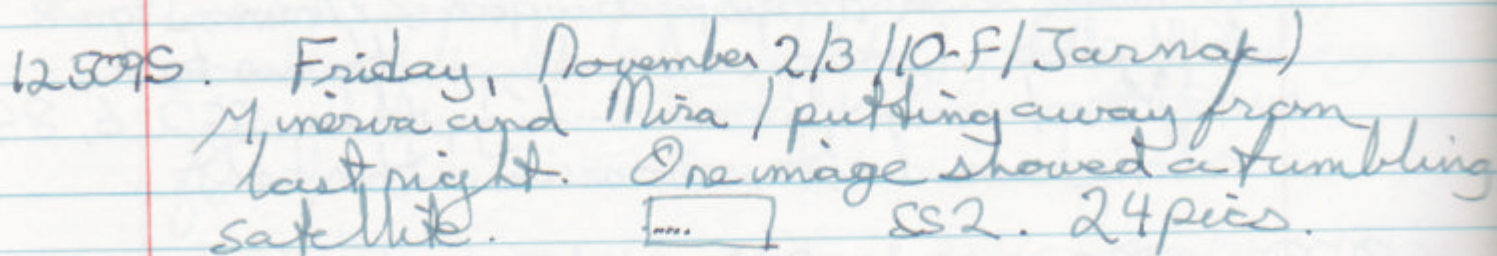 12509S. Friday, November 2/3/10-F/Jarnac)
Minerva and Mira / putting away from
last night. One image showed a tumbling
satellite. .... SS2. 24 pics.